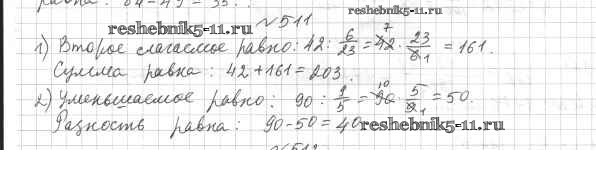 равна: 84-49=35.
reshebnik5-11.ru
№511
reshebnik5-11.ru
1) Второе слагаемое равно: 42 : 6/23 = 42 7 · 23/6 1 = 161.
Сумма равна: 42+161=203.
2) Уменьшаемое равно: 90 : 9/5 = 90 10 · 5/9 1 = 50.
Разность равна: 90-50=40
reshebnik5-11.ru
№512